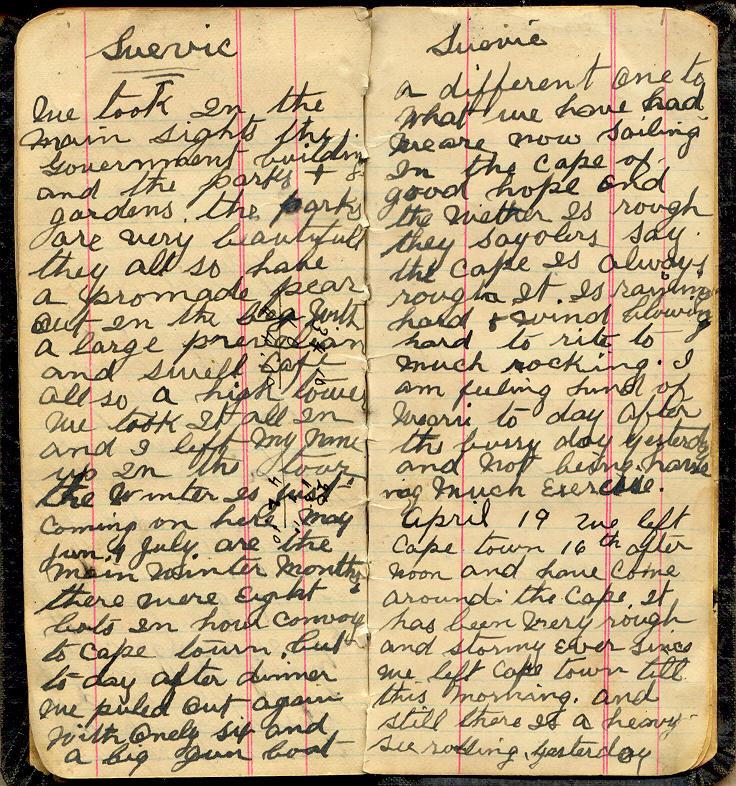 Suevic
we took in the
main sights the
Government building
and the parks +
gardens. the parks
are very beautifull
they all so have
a promade pear
out in the Sea with
a large
and swell Cafe
all so a high tower
we took it all in
and I left my name
up in the tour
the Winter is just
coming on here May
jun & July are the
main Winter Months
there were Eight
bots in hour convoy
to Cape tourn, but
to day after dinner
we puled out again
With Onely six and
a big gun boat
Suevic
a different One to
what we have had
we are now sailing
in the Cape of
good hope and
the Wether is rough
they sayolers say.
the Cape is always
rough. It. is raining
hard + wind blowing
hard to rite to
much rocking. I
am feeling kind of
to day after
the bussy day yesterday
and Not being have
ing Much Exercise.
April 19 we left
Cape town 16th after
noon and have Come
around the Cape It
has been Very rough
and stormy Ever Since
we left Cape town till
this morning. and
still there is a heavy
see rolling yesterday